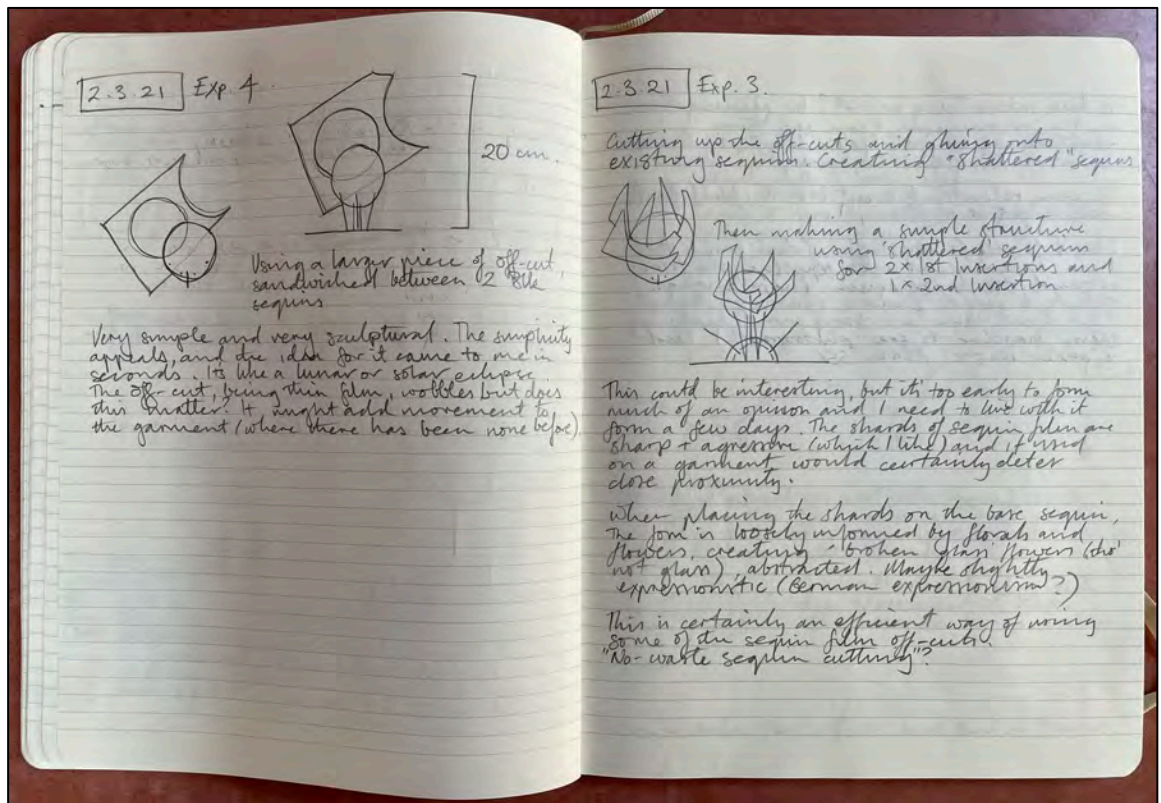 2.3.21 Exp. 4
20 cm.
Using a larger piece of off-cut,
sandwiched between 2
sequins
Very simple and very sculptural. The simplicity
appeals, and the idea for it came to me in
seconds. Its like a lunar or solar eclipse
The off-cut, being thin film, wobbles but does
this matter. It might add movement to
the garment (where there has been none before)
2.3.21 Exp. 3.
Cutting up the off-cuts and gluing onto
existing sequins. Creating "shattered" sequins
Then making a simple structure
using 'shattered' sequin
for 2x 1st Insertions and
1x 2nd Insertion
This could be interesting, but it's too early to form
much of an opinion and I need to live with it
form a few days. The shards of sequin film are
sharp + agressive (which I like) and if used
on a garment would certainly deter
close proximity.
When placing the shards on the base sequin,
The form is loosely informed by florals and
flowers, creating 'broken glass' flowers (tho'
not glass) abstracted. Maybe slightly
expressionistic (German expressionism?)
This is certainly an efficient way of using
some of the sequin film off-cuts.
"No-waste sequin cutting"?